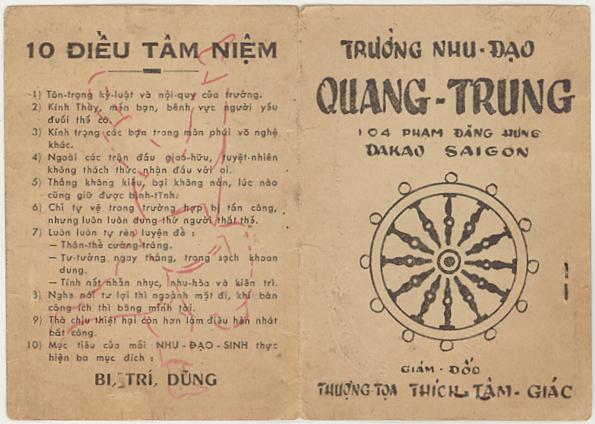 10 ĐIỀU TÂM NIỆM
1) Tôn-trọng kỷ-luật và nội-quy của trường.
2) Kính Thày, mến bạn, bênh vực người yếu
đuối thế cô.
3) Kính trọng các bạn trong môn phái võ nghệ
khác.
4) Ngoài các trận đấu giao-hữu, tuyệt-nhiên
không thách thức nhận đấu với ai.
5) Thắng không kiêu, bại không nản, lúc nào
cũng giữ được bình-tĩnh.
6) Chỉ tự vệ trong trường hợp bị tấn công,
nhưng luôn luôn dung-thứ người thất thế.
7) Luôn luôn tự rèn luyện để :
— Thân-thể cường-tráng.
— Tư-tưởng ngay thẳng, trong sạch khoan
dung.
— Tính nết nhẫn nhục, nhu-hòa và kiên trì.
8) Nghe nói tư lợi thì ngoảnh mặt đi, khi bàn
công ích thì bằng mình tới.
9) Thà chịu thiệt hại còn hơn làm điều hèn nhát
bất công.
10) Mục tiêu của mỗi NHU - ĐẠO - SINH thực
hiện ba mục đích :
BI, TRÍ, DŨNG
TRƯỜNG NHU-ĐẠO
QUANG-TRUNG
104 PHẠM ĐĂNG HƯNG
ĐAKAO SAIGON
GIÁM - ĐỐC
THƯỢNG TỌA THÍCH TÂM-GIÁC